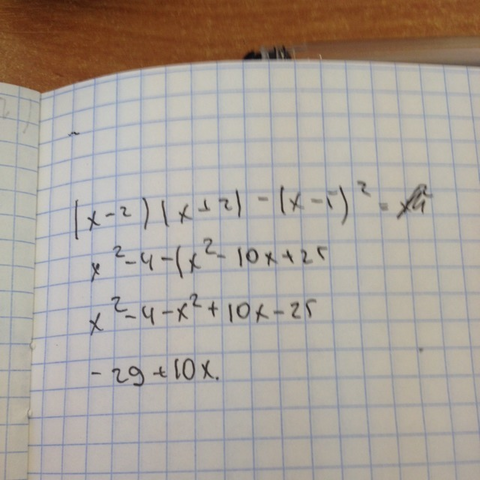 (x-2)(x+2)-(x-5)² =
x²-4-(x²-10x+25
x²-4-x²+10x-25
-29+10x.